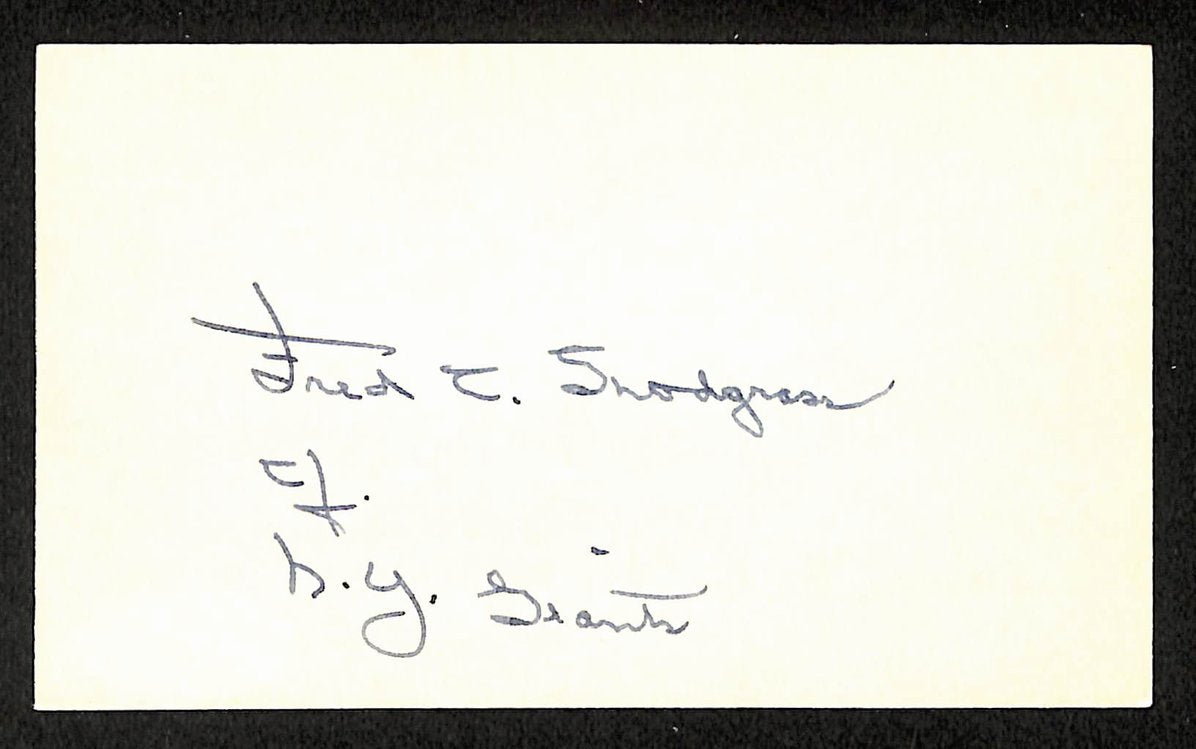 Fred C. Snodgrass
cf.
N.Y. Giants